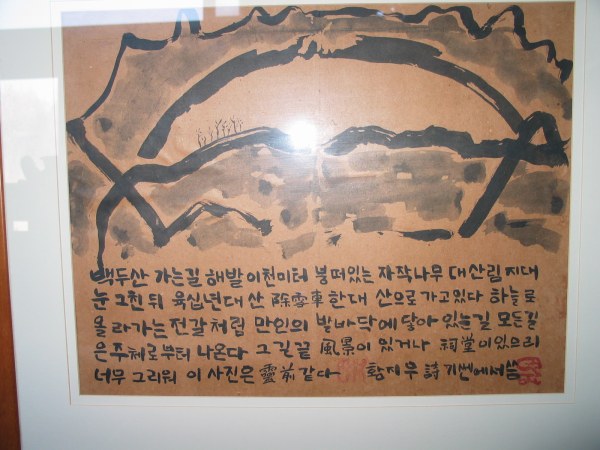 백두산 가는길 해발 이천미터 붕떠있는 자작나무 대산림 지대
눈 그친 뒤 육십년대산 除雪車 한대 산으로 가고있다 하늘로
올라가는 전갈처럼 만인의 발바닥에 닿아 있는길 모든길
은 주체로부터 나온다 그 길 끝 風景이 있거나 祠堂이 있으리
너무 그리워 이 사진은 靈前 같다 황지우 詩 기쎈에서 씀